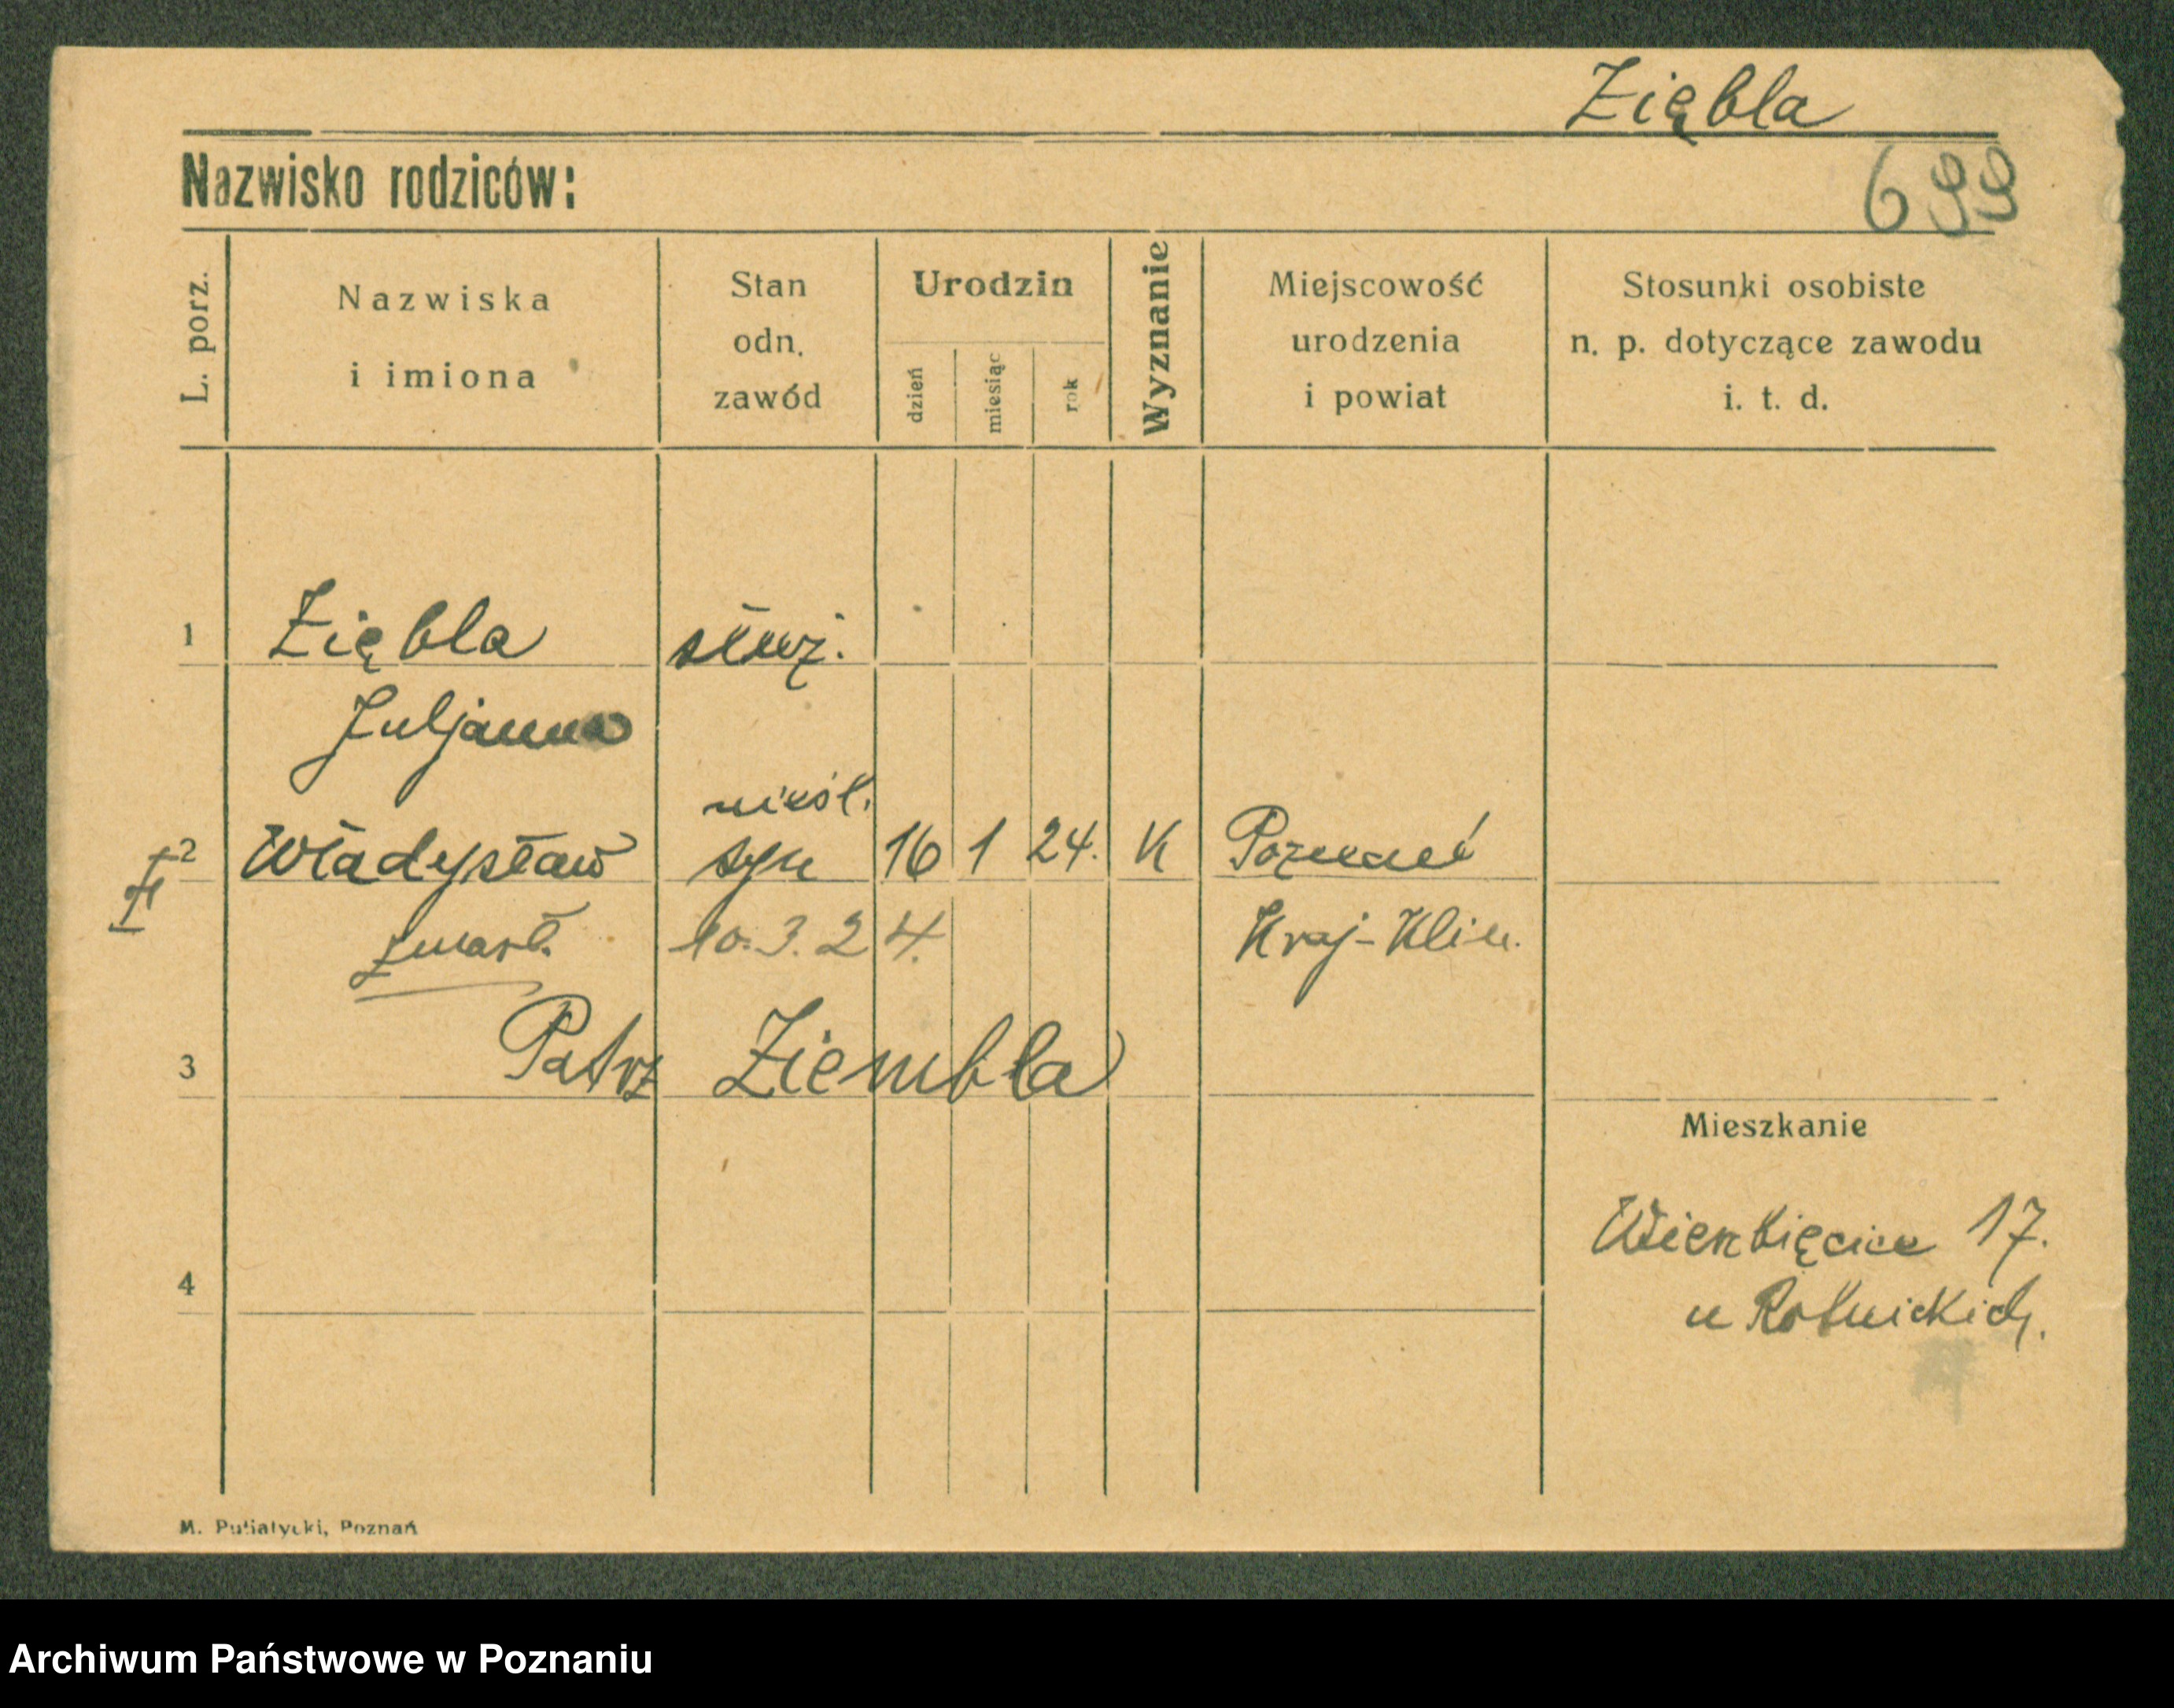 Ziębla
Nazwisko rodziców:
699
L. porz.
Nazwiska
i imiona
Stan
odn.
zawód
Urodzin
dzień
miesiąc
rok
Wyznanie
Miejscowość
urodzenia
i powiat
Stosunki osobiste
n. p. dotyczące zawodu
i. t. d.
1 Ziębla służ.
Juljanna
nieśl.
2 Władysław syn 16 1 24. K Poznań
zmarł. 10.3.24. Kraj-Klin.
3 Patrz Ziembla
Mieszkanie
Wierzbięcice 17.
4
u Rotnickich.
M. Putiatycki, Poznań
Archiwum Państwowe w Poznaniu